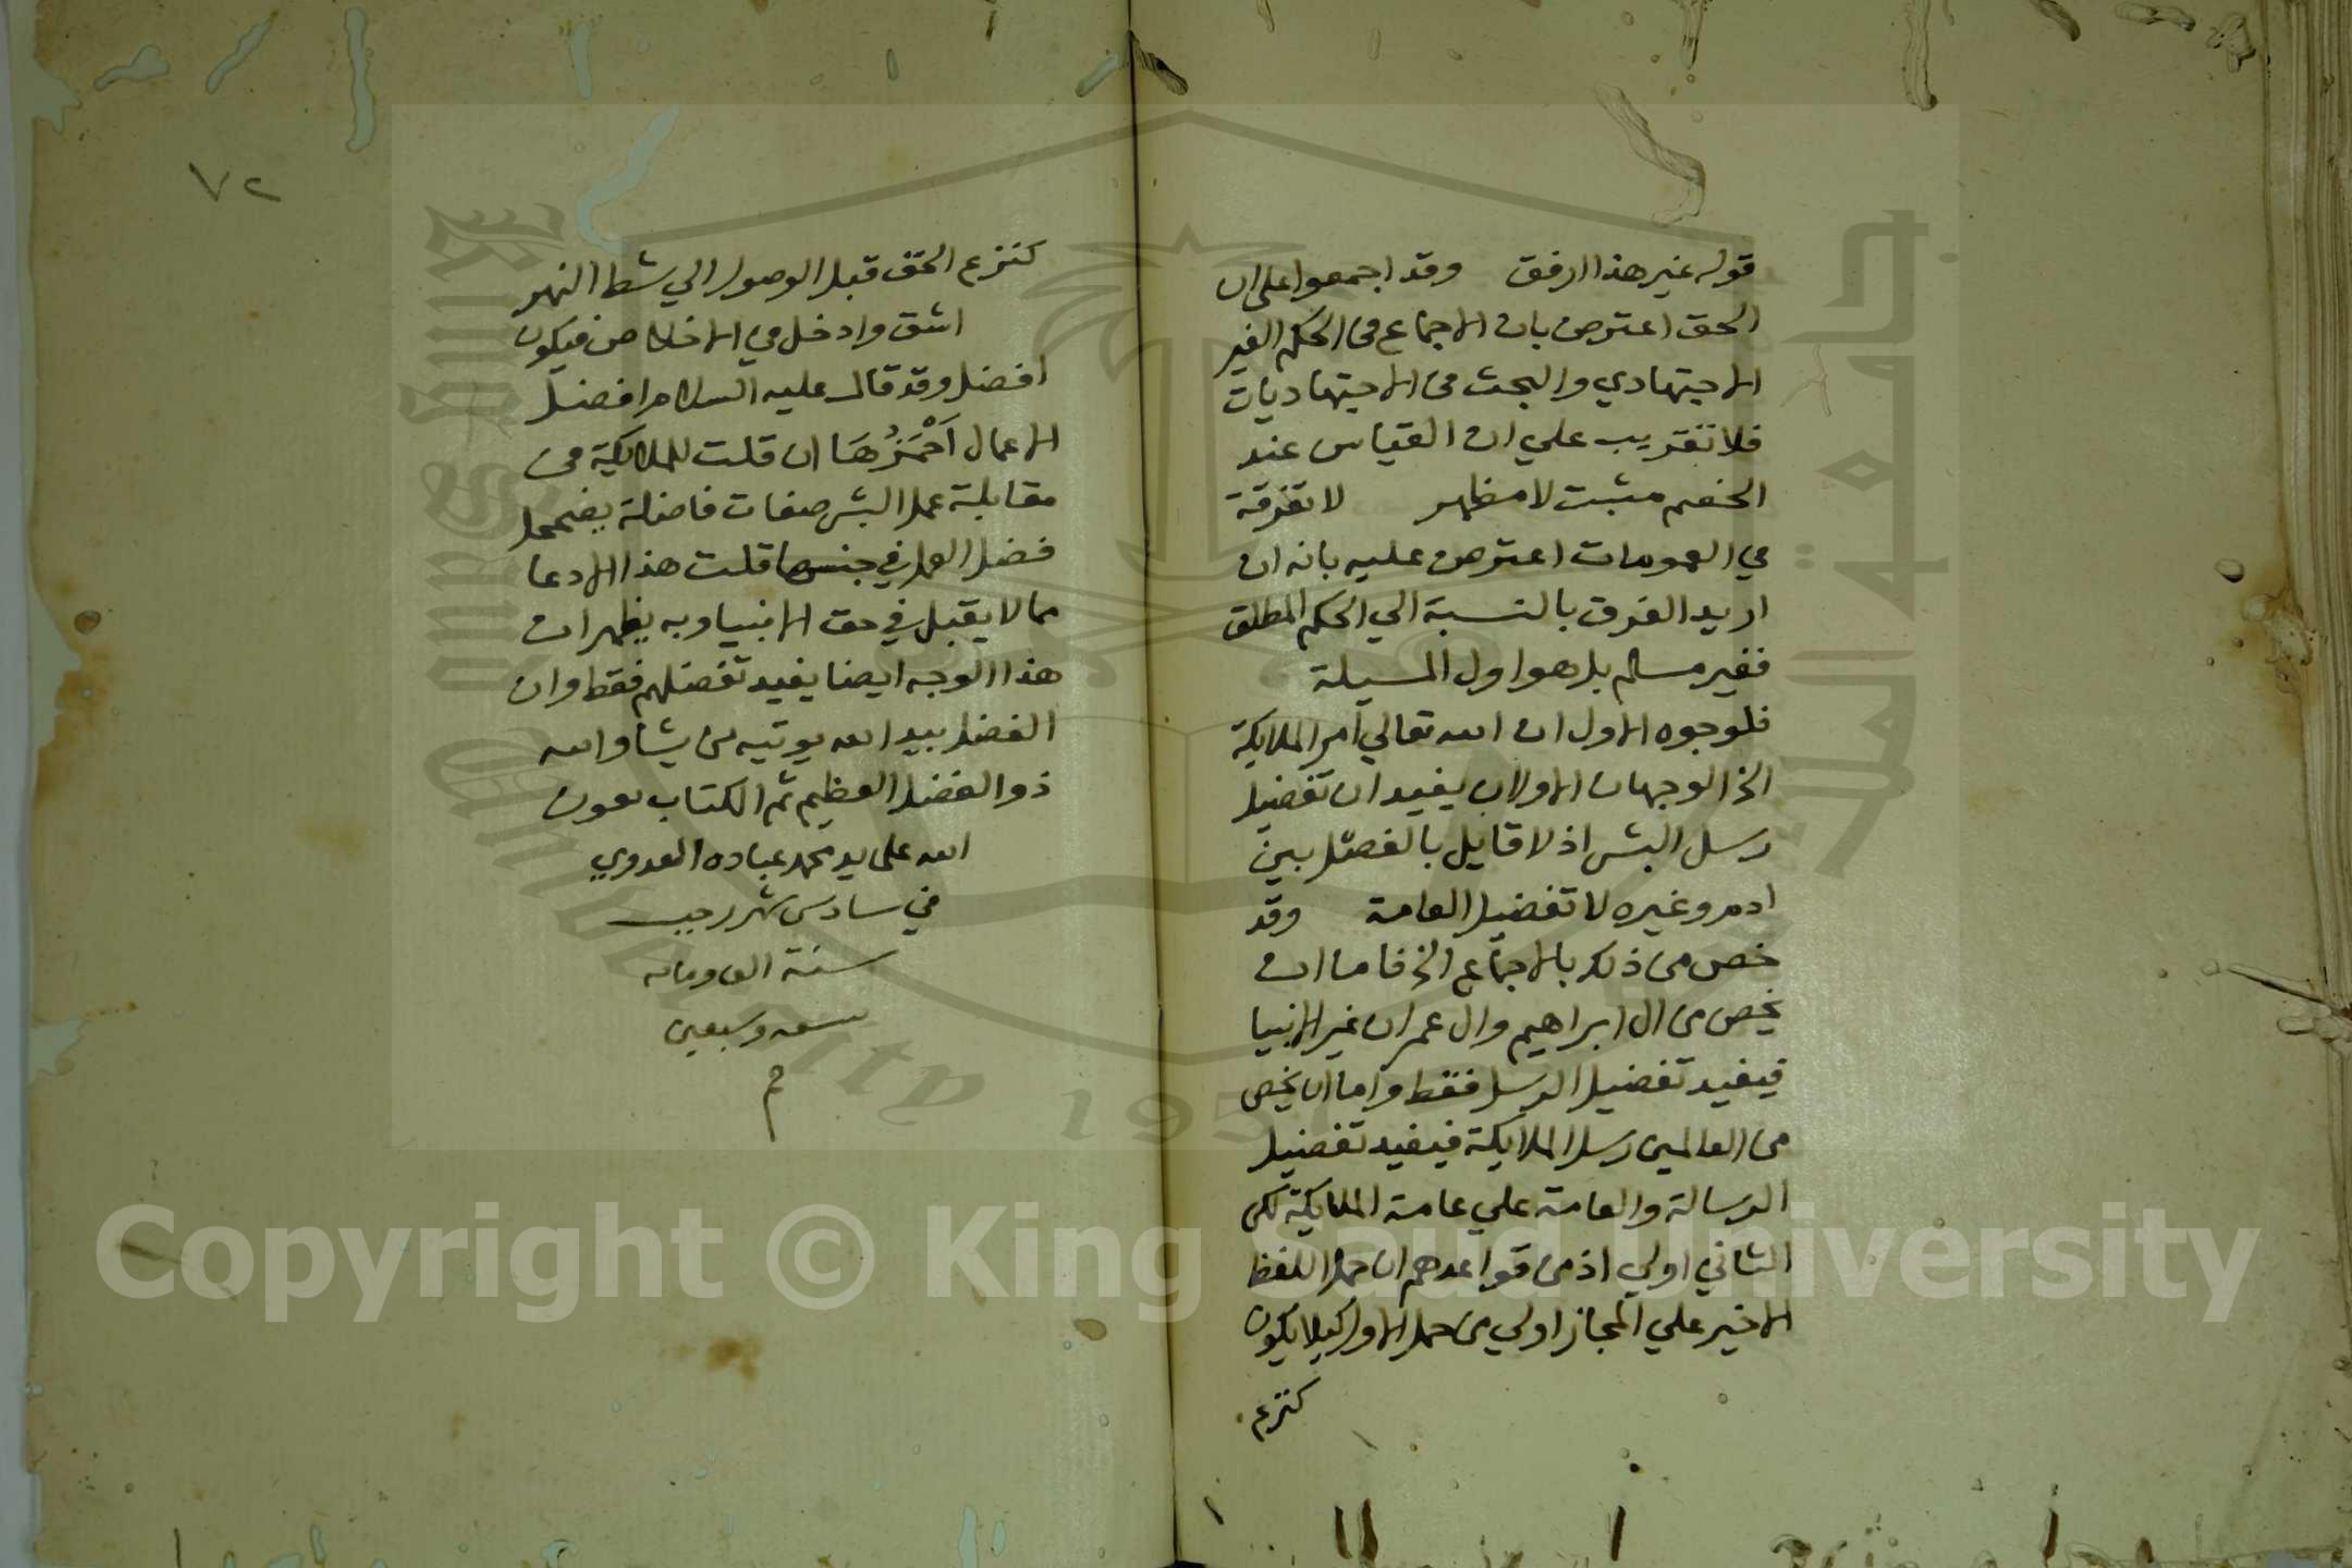 قوله غير هذا ارفق وقد اجمعوا على ان
الحق اعترض بان الاجماع في الحكم الغير
الاجتهادي والبحث في الاجتهاديات
فلا تقريب علي ان القياس عند
الخصم مثبت لا مظهر لا تفرقة
في العمومات اعترض عليه بانه ان
اريد الفرق بالنسبة الي الحكم المطلق
فغير مسلم بل هو اول المسيلة
فلوجوه الاول ان الله تعالي أمر الملايكة
الخ الوجهان الاولان يفيد ان تفضيل
رسل البشر اذ لا قايل بالفصل بين
ادم وغيره لا تفضيل العامة وقد
خص من ذلك بالاجماع الخ فاما ان
يخص من ال ابراهيم وال عمران غير الانبيا
فيفيد تفضيل الرسل فقط واما ان يخص
من العالمين رسل الملايكة فيفيد تفضيل
الرسالة والعامة علي عامة الملايكة لكن
الثاني اولي اذ من قواعدهم ان حمل اللفظ
الاخير علي المجاز اولي من حمل الاول كيلا يكون
كنزع
٧٢
كنزع الخف قبل الوصول الي شط النهر
اشق وادخل في الاخلاص فيكون
افضل وقد قال عليه السلام افضل
الاعمال أَحْمَزُهَا ان قلت للملايكة في
مقابلة عمل البشر صفات فاضلة يضمحل
فضل العمل في جنبها قلت هذا الادعا
مما لا يقبل في حق الانبيا وبه يظهر ان
هذا الوجه ايضا يفيد تفضلهم فقط وان
الفضل بيد الله يوتيه من يشا والله
ذو الفضل العظيم تم الكتاب بعون
الله على يد محمد عباده العدوي
في سادس شهر رجب
سنة الف ومايه
وسبعين
م
Copyright © King Saud University